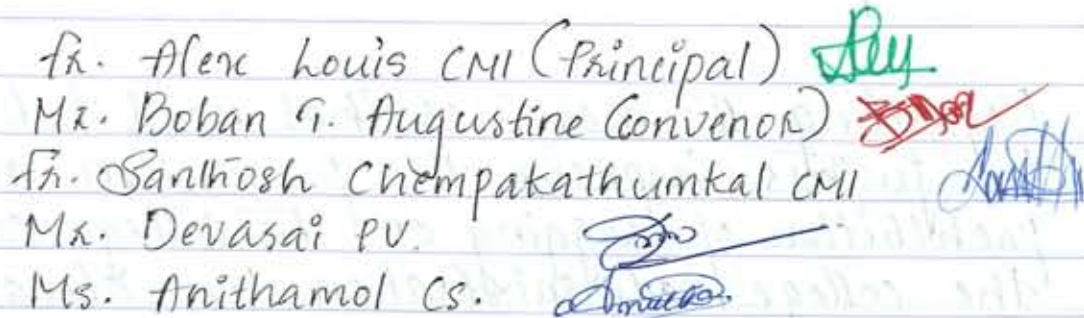 Fr. Alex Louis CMI (Principal)
Mr. Boban G. Augustine (Convenor)
Fr. Santhosh Chempakathumkal CMI
Mr. Devasai PV.
Ms. Anithamol CS.